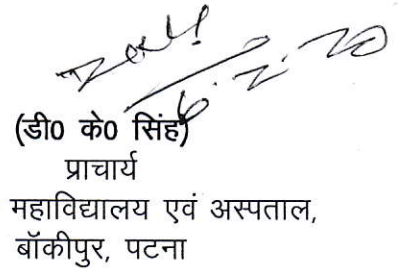 6.2.20
(डी0 के0 सिंह)
प्राचार्य
महाविद्यालय एवं अस्पताल,
बॉकीपुर, पटना